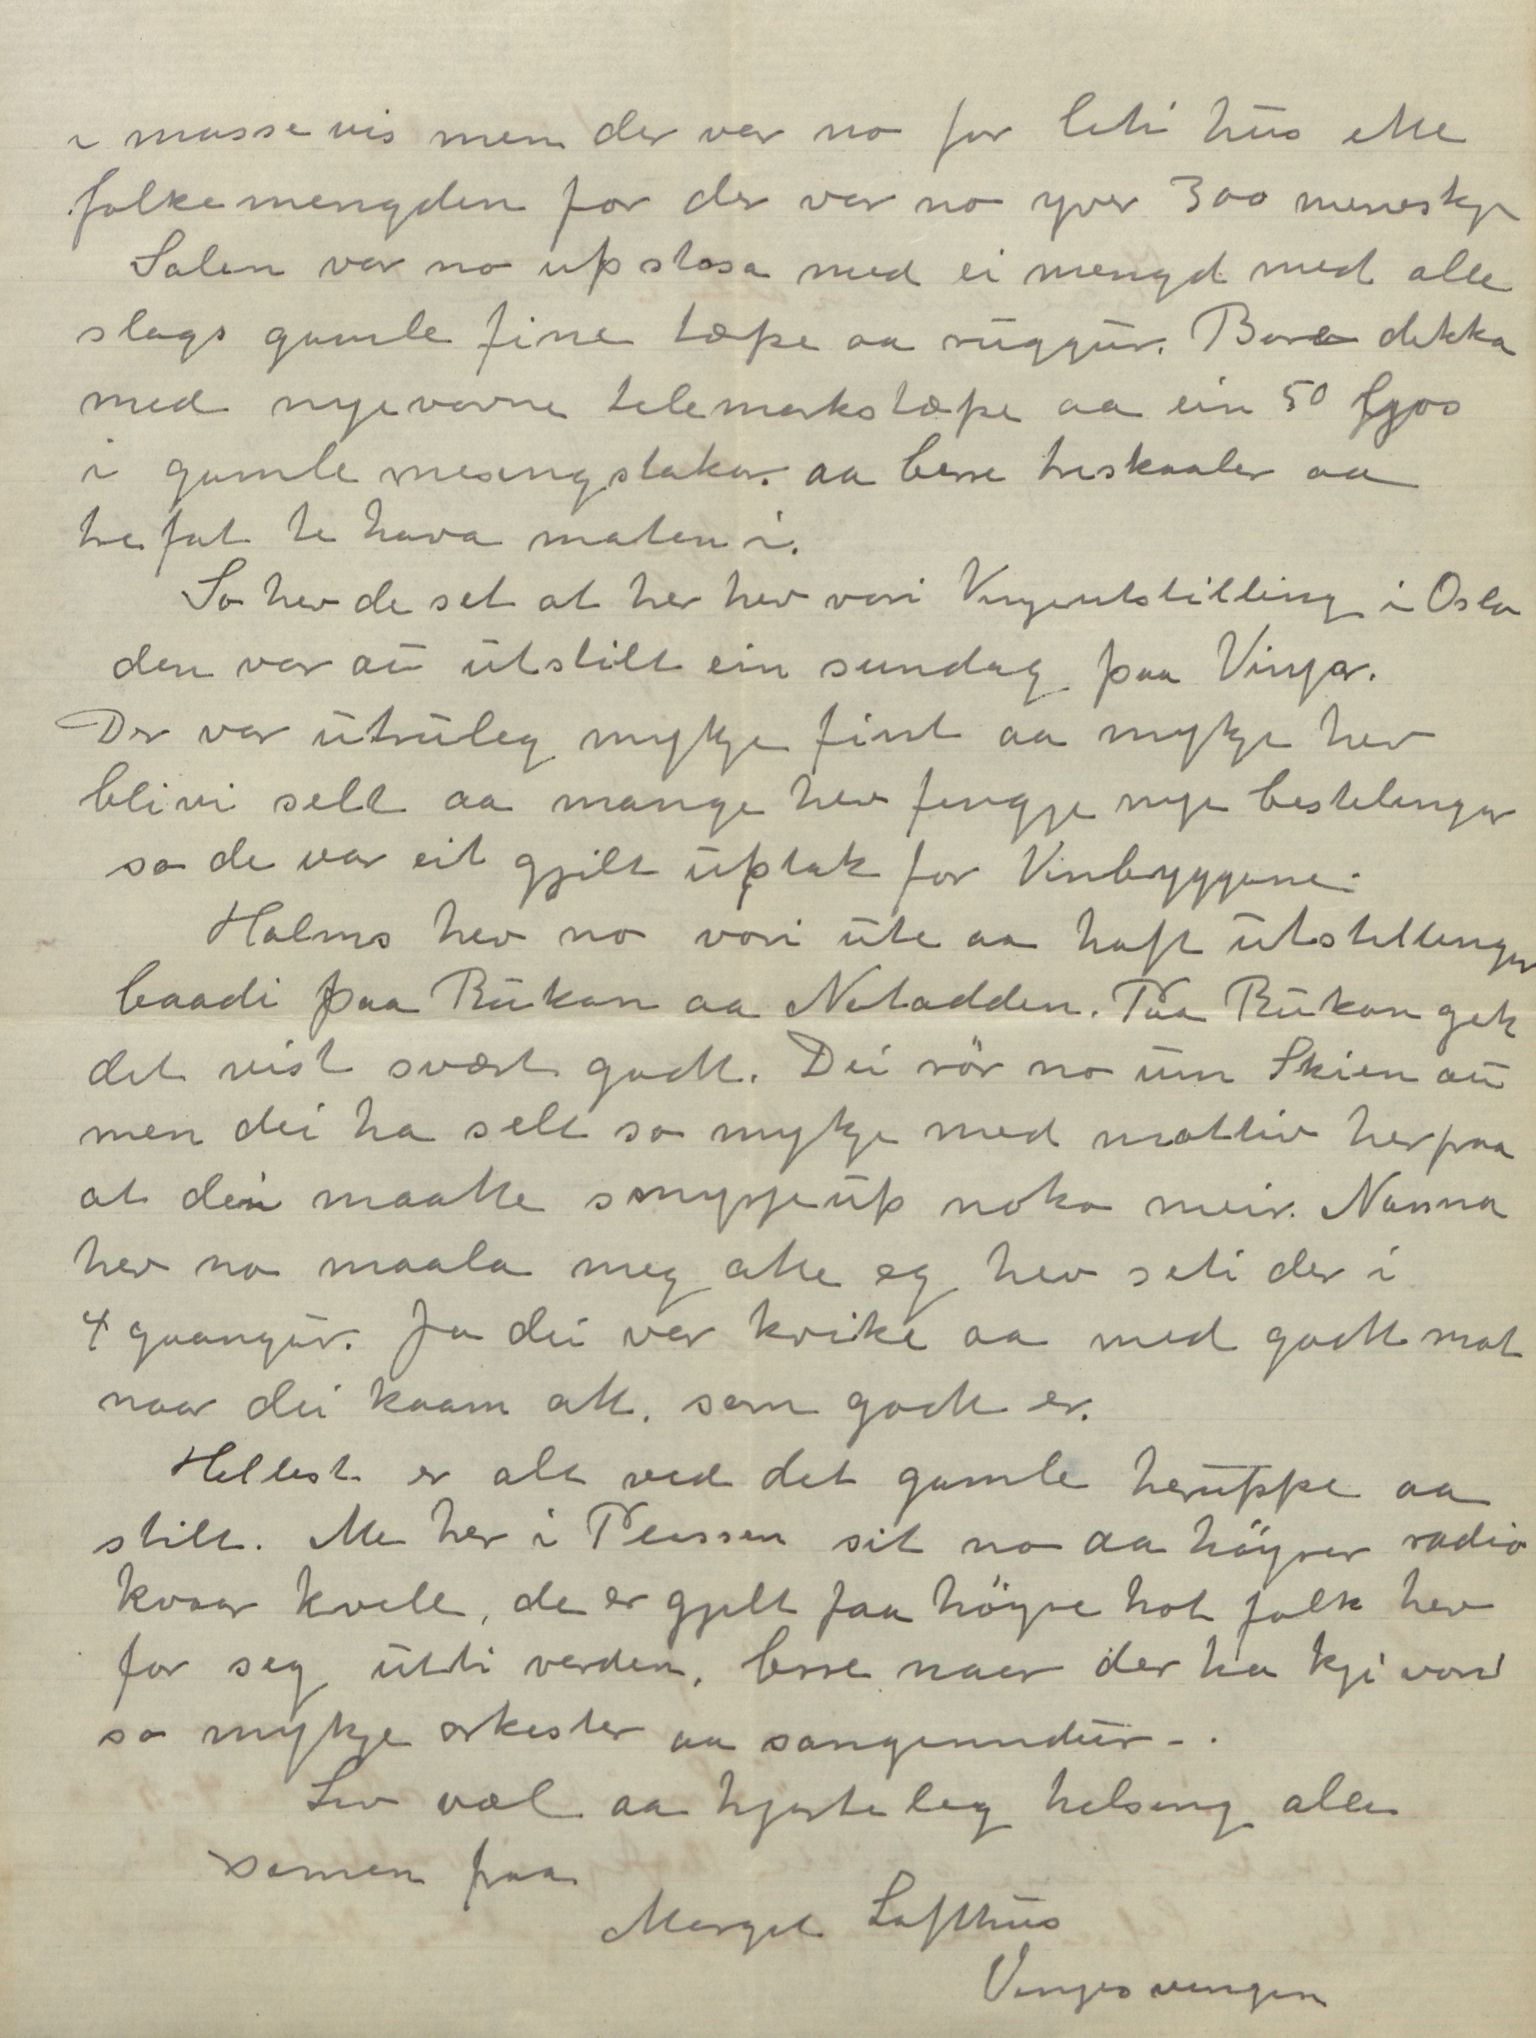 i massevis men der var no for liti hus ette
folkemengden for der var no yver 300 meneskje
Salen var no upstasa med ei mengd med alle
slags gamle fine tæpe aa ruggur. Bora dekka
med nyevovne telemarkstæpe aa ein 50 ljos
i gamle mesingstakar. aa berre treskaaler aa
trefat te hava maten i.
So hev de set at her hev vori Vinjeutstilling i Oslo
den var au utstilt ein sundag paa Vinjar.
Der var utruleg mykje fint aa mykje hev
blivi selt aa mange hev fengje nye bestelingar
so de var eit gjilt uptak for Vinbyggjene.
Holms hev no vori ute aa haft utstellingar
baadi paa Rukan aa Notodden. Paa Rukan gek
det vist svært godt. Dei rör no um Skien au
men dei ha selt so mykje med mottiv herfraa
at dei maatte smyrje up noko meir. Nanna
hev no maala meg atte eg hev seti der i
4 gaangur. Ja dei var krike aa med godt mot
naar dei kaam att. som godt er.
Hellest er alt ved det gamle heruppe aa
stilt. Me her i Plassen sit no aa höyrer radio
kvaar kvell, de er gjilt faa höyre hot folk hev
for seg utti verden, berre naar der ha kji vori
so mykje orkester aa songenndur -.
Lev væl aa hjarteleg helsing alle
samen fraa
Margit Lofthus
Vinjesvingen